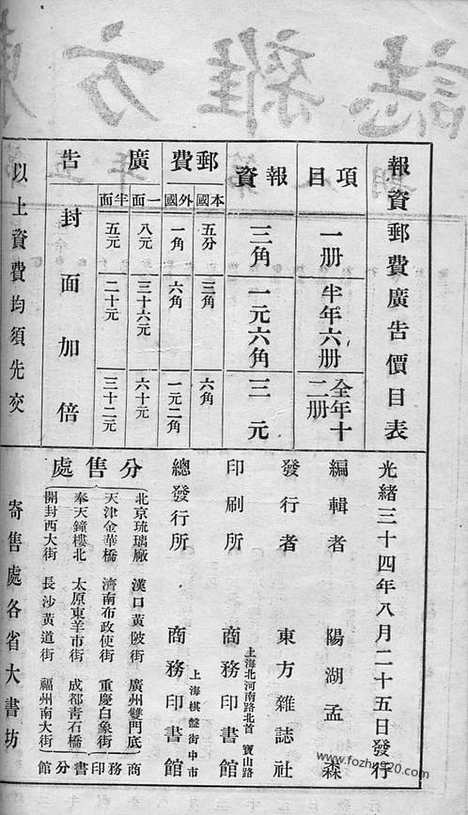 方雜誌
報資郵費廣告價目表
項目 一册 半年六册 全年十二册
報資 三角 一元六角 三元
郵費 本國 五分 三角 六角
外國 一角 六角 一元二角
廣告 一面 八元 三十六元 六十元
半面 五元 二十元 三十二元
封面加倍
以上資費均須先交
光緒三十四年八月二十五日發行
編輯者 陽湖孟森
發行者 東方雜誌社
印刷所 上海北河南路北首寶山路 商務印書館
總發行所 上海棋盤街中市 商務印書館
分售處
北京琉璃廠 漢口黃陂街 廣州雙門底
天津金華橋 濟南布政使街 重慶白象街
奉天鐘樓北 太原東羊市街 成都青石橋
開封西大街 長沙黃道街 福州南大街
商務印書分館
寄售處各省大書坊
www.fozhu920.com